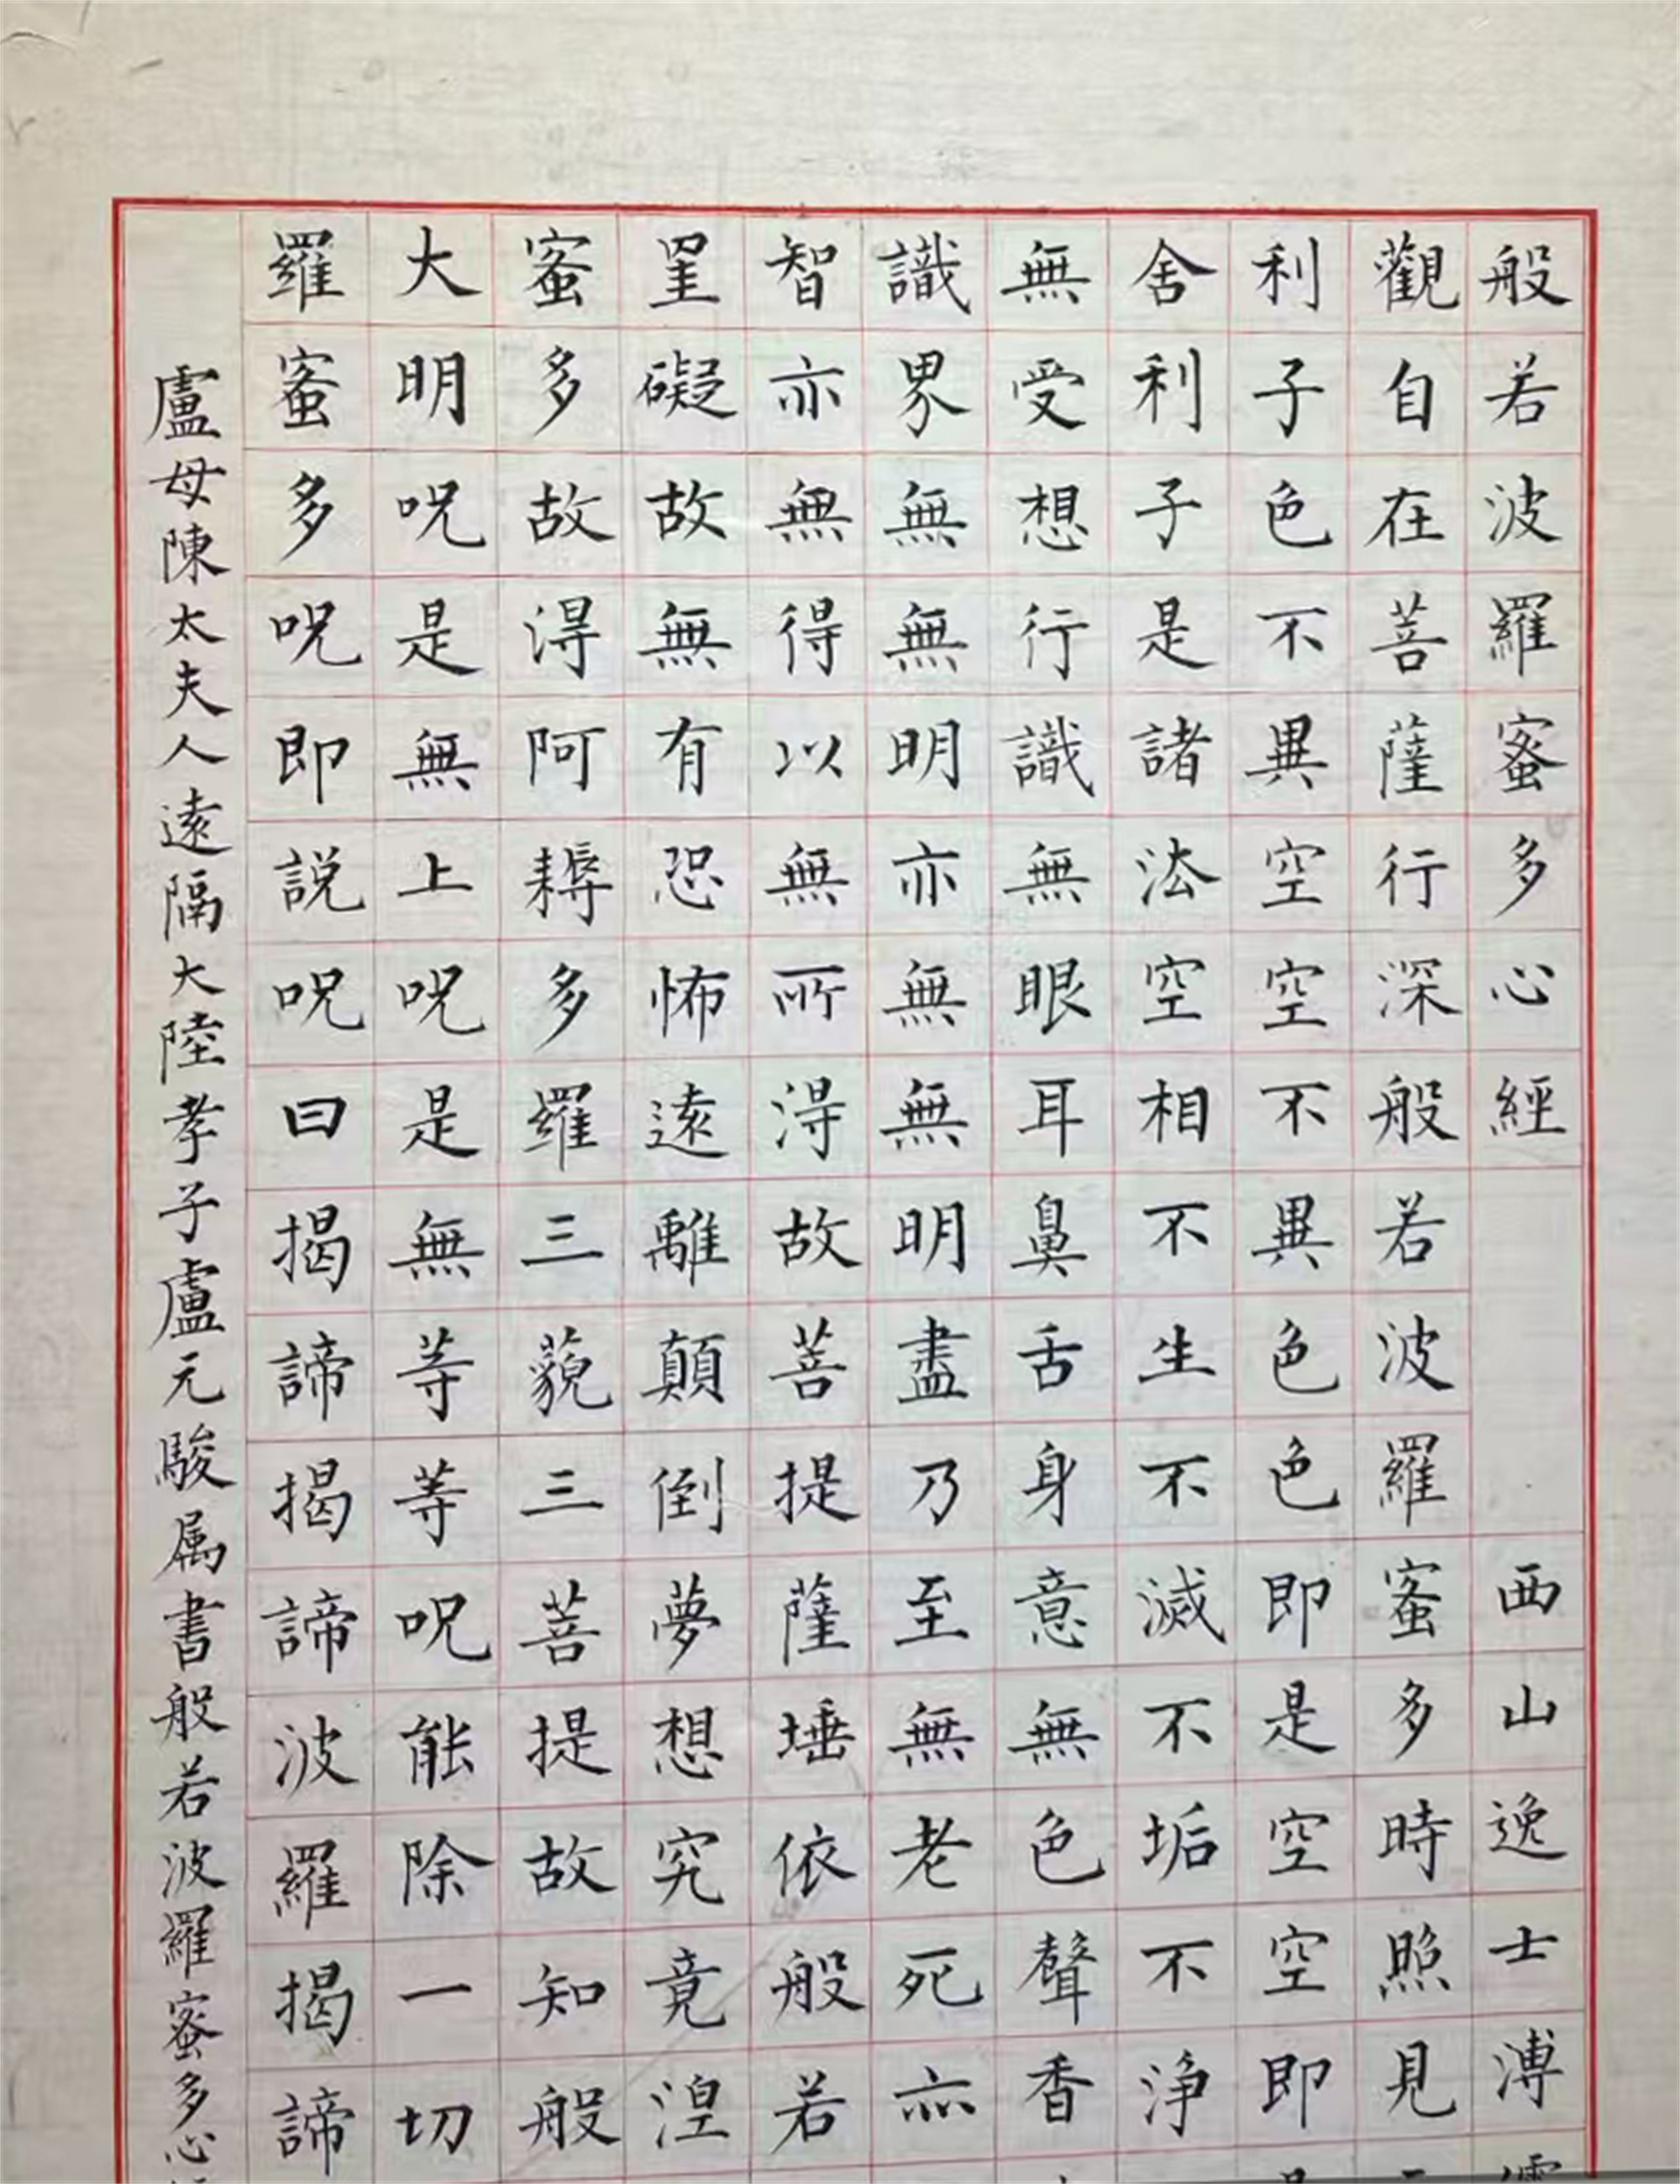 般若波羅蜜多心經 西山逸士溥
觀自在菩薩行深般若波羅蜜多時照見
利子色不異空空不異色色即是空空即
舍利子是諸法空相不生不滅不垢不淨
無受想行識無眼耳鼻舌身意無色聲香
識界無無明亦無無明盡乃至無老死亦
智亦無得以無所得故菩提薩埵依般若
罣礙故無有恐怖遠離顛倒夢想究竟涅
蜜多故得阿耨多羅三藐三菩提故知般
大明呪是無上呪是無等等呪能除一切
羅蜜多呪即說呪曰揭諦揭諦波羅揭諦
盧母陳太夫人遠隔大陸孝子盧元駿属書般若波羅蜜多心